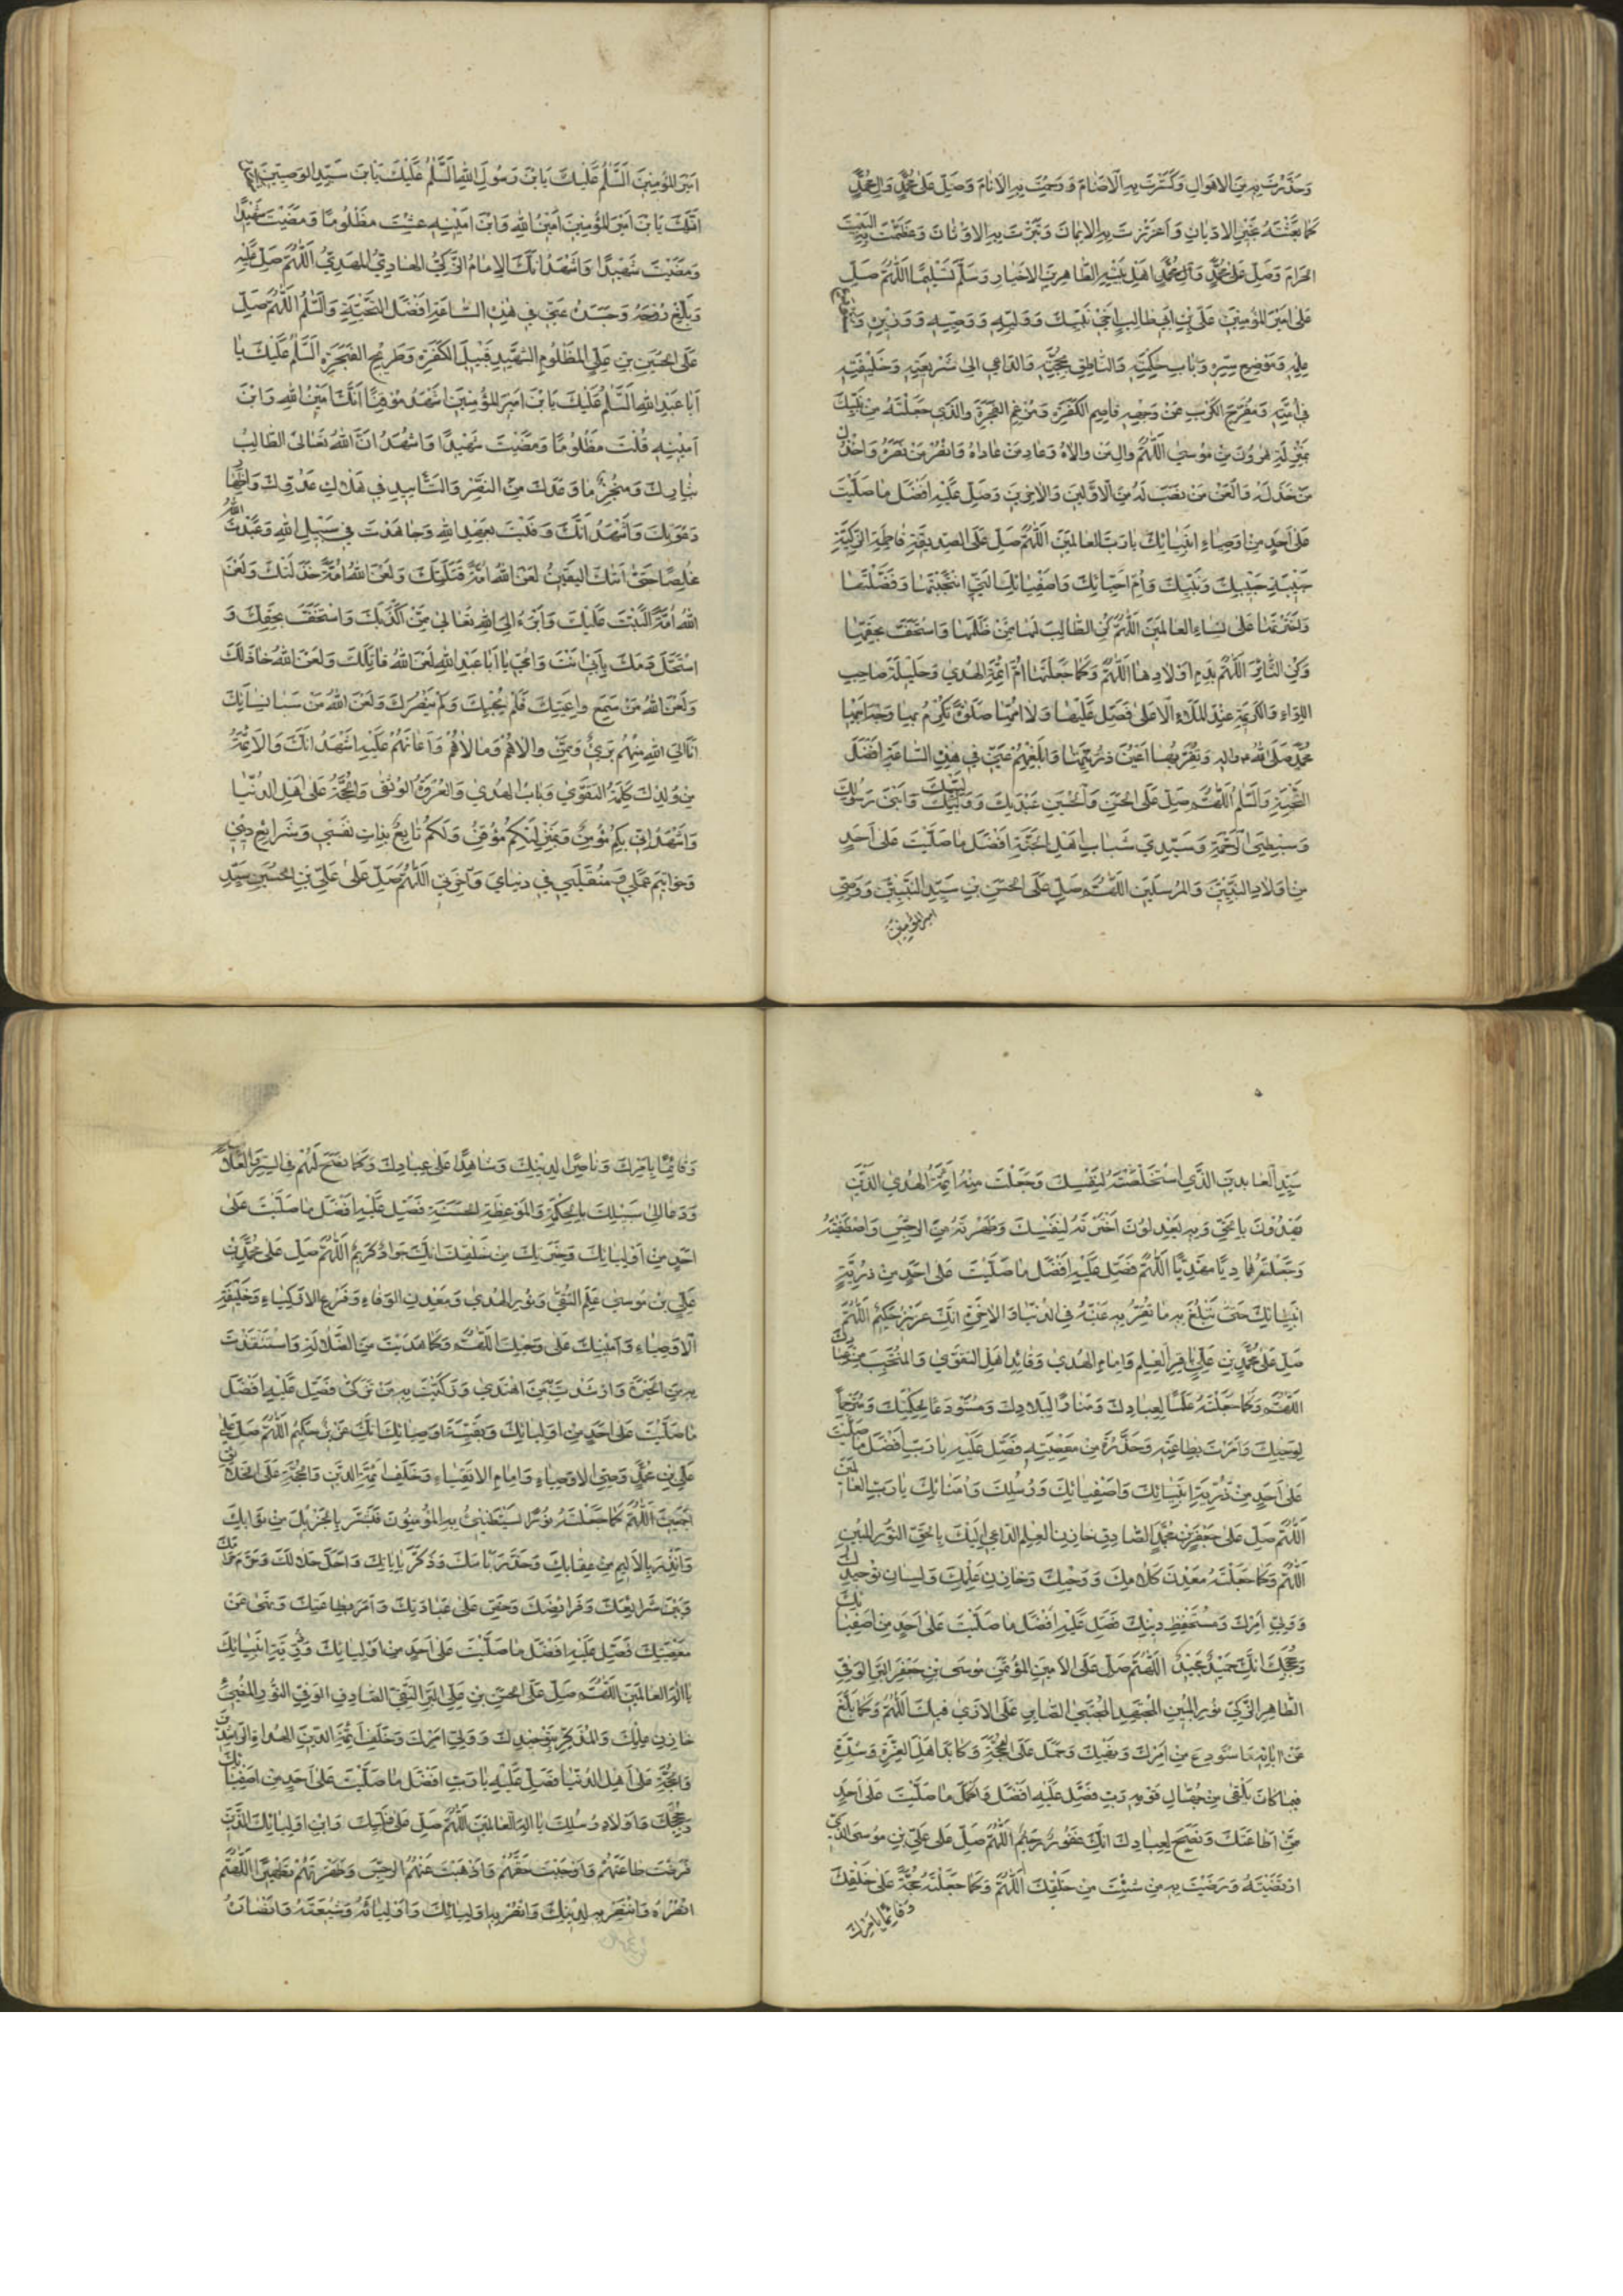 وَحَذَّرْتَ بِهِ مِنَ الاَهوَالِ وَكَسَّرْتَ بِهِ الاَصْنَامَ وَرَحِمْتَ بِهِ الاَنَامَ وَصَلِّ عَلىٰ مُحَمَّدٍ وَآلِ مُحَمَّدٍ
كَمَا بَعَثْتَهُ بِخَيْرِ الادْيَانِ وَاَعْزَزْتَ بِهِ الايمَانَ وَتَبَّرْتَ بِهِ الاَوْثَانَ وَعَظَّمْتَ بِهِ البَيْتَ
الحَرَامَ وَصَلِّ عَلىٰ مُحَمَّدٍ وَآلِ مُحَمَّدٍ اَهْلِ بَيْتِهِ الطَّاهِرِينَ الاَخْيَارِ وَسَلِّمْ تَسْلِيمًا اَللّٰهُمَّ صَلِّ
عَلىٰ اَمِيرِ المُؤمِنِينَ عَلِيِّ بْنِ اَبِيطَالِبٍ اَخِي نَبِيِّكَ وَوَلِيِّهِ وَوَصِيِّهِ وَوَزِيرِهِ وَمُسْتَوْدَعِ
عِلْمِهِ وَمَوْضِعِ سِرِّهِ وَبَابِ حِكْمَتِهِ وَالنَّاطِقِ بِحُجَّتِهِ وَالدَّاعِي اِلىٰ شَرِيعَتِهِ وَخَلِيفَتِهِ
فِي اُمَّتِهِ وَمُفَرِّجِ الكَرْبِ عَنْ وَجْهِهِ قَاصِمِ الكَفَرَةِ وَمُرْغِمِ الفَجَرَةِ وَالَّذِي جَعَلْتَهُ مِنْ نَبِيِّكَ
بِمَنْزِلَةِ هٰرُونَ مِنْ مُوسىٰ اَللّٰهُمَّ وَالِ مَن وَالاهُ وَعَادِ مَنْ عَادَاهُ وَانْصُرْ مَنْ نَصَرَهُ وَاخْذُلْ
مَنْ خَذَلَهُ وَالْعَنْ مَنْ نَصَبَ لَهُ مِنَ الاَوَّلِينَ وَالاٰخِرِينَ وَصَلِّ عَلَيْهِ اَفْضَلَ مَا صَلَّيْتَ
عَلىٰ اَحَدٍ مِنْ اَوْصِيَاءِ اَنْبِيَائِكَ يَا رَبَّ العَالَمِينَ اَللّٰهُمَّ صَلِّ عَلَى الصِّدِّيقَةِ فَاطِمَةَ الزَّكِيَّةِ
حَبِيبَةِ حَبِيبِكَ وَنَبِيِّكَ وَاُمِّ اَحِبَّائِكَ وَاَصْفِيَائِكَ الَّتِي انْتَجَبْتَهَا وَفَضَّلْتَهَا
وَاخْتَرْتَهَا عَلىٰ نِسَاءِ العَالَمِينَ اَللّٰهُمَّ كُنِ الطَّالِبَ لَهَا مِمَّنْ ظَلَمَهَا وَاسْتَخَفَّ بِحَقِّهَا
وَكُنِ الثَّائِرَ اَللّٰهُمَّ بِدَمِ اَوْلادِهَا اَللّٰهُمَّ وَكَمَا جَعَلْتَهَا اُمَّ اَئِمَّةِ الهُدىٰ وَحَلِيلَةَ صَاحِبِ
اللِّوَاءِ وَالكَرِيمَةَ عِنْدَ المَلَاءِ الاَعْلىٰ فَصَلِّ عَلَيْهَا وَعَلىٰ اُمِّهَا صَلوٰةً تُكْرِمُ بِهَا وَجْهَ اَبِيهَا
مُحَمَّدٍ صَلَّى اللهُ عليه واله وَتُقِرُّ بِهَا اَعْيُنَ ذُرِّيَّتِهَا وَاَبْلِغْهُمْ عَنِّي فِي هٰذِهِ السَّاعَةِ اَفْضَلَ
التَّحِيَّةِ وَالسَّلٰمِ اَللّٰهُمَّ صَلِّ عَلَى الحَسَنِ وَالحُسَيْنِ عَبْدَيْكَ وَوَلِيَّيْكَ وَابْنَيْ رَسُولِكَ
وَسِبْطَيِ الرَّحْمَةِ وَسَيِّدَيْ شَبَابِ اَهْلِ الجَنَّةِ اَفْضَلَ مَا صَلَّيْتَ عَلىٰ اَحَدٍ
مِنْ اَوْلَادِ النَّبِيِّينَ وَالمُرْسَلِينَ اَللّٰهُمَّ صَلِّ عَلَى الحَسَنِ بْنِ سَيِّدِ النَّبِيِّينَ وَوَصِيِّ
امير المؤمنين
اَمِيرِ المُؤمِنِينَ اَلسَّلٰمُ عَلَيْكَ يَابْنَ رَسُولِ اللهِ اَلسَّلٰمُ عَلَيْكَ يَابْنَ سَيِّدِ الوَصِيِّينَ اَشْهَدُ
اَنَّكَ يَابْنَ اَمِيرِ المُؤمِنِينَ اَمِينُ اللهِ وَابْنُ اَمِينِهِ عِشْتَ مَظْلُومًا وَمَضَيْتَ شَهِيدًا
وَمَضَيْتَ شَهِيدًا وَاَشْهَدُ اَنَّكَ الاِمَامُ الزَّكِيُّ الهَادِيُّ المَهْدِيُّ اَللّٰهُمَّ صَلِّ عَلَيْهِ
وَبَلِّغْ رُوحَهُ وَجَسَدَهُ عَنِّي فِي هٰذِهِ السَّاعَةِ اَفْضَلَ التَّحِيَّةِ وَالسَّلٰمِ اَللّٰهُمَّ صَلِّ
عَلَى الحُسَيْنِ بْنِ عَلِيٍّ المَظْلُومِ الشَّهِيدِ قَتِيلِ الكَفَرَةِ وَطَرِيحِ الفَجَرَةِ اَلسَّلٰمُ عَلَيْكَ يَا
اَبَا عَبْدِ اللهِ اَلسَّلٰمُ عَلَيْكَ يَابْنَ اَمِيرِ المُؤمِنِينَ اَشْهَدُ مُوقِنًا اَنَّكَ اَمِينُ اللهِ وَابْنُ
اَمِينِهِ قُتِلْتَ مَظْلُومًا وَمَضَيْتَ شَهِيدًا وَاَشْهَدُ اَنَّ اللهَ تَعَالىٰ الطَّالِبُ
بِثَارِكَ وَمُنْجِزٌ مَا وَعَدَكَ مِنَ النَّصْرِ وَالتَّأيِيدِ فِي هَلَاكِ عَدُوِّكَ وَاِظْهَارِ
دَعْوَتِكَ وَاَشْهَدُ اَنَّكَ وَفَيْتَ بِعَهْدِ اللهِ وَجَاهَدْتَ فِي سَبِيلِ اللهِ وَعَبَدْتَ اللهَ
مُخْلِصًا حَتّىٰ اَتٰيكَ اليَقِينُ لَعَنَ اللهُ اُمَّةً قَتَلَتْكَ وَلَعَنَ اللهُ اُمَّةً خَذَلَتْكَ وَلَعَنَ
اللهُ اُمَّةً اَلَّبَتْ عَلَيْكَ وَاَبْرَءُ اِلىَ اللهِ تَعَالىٰ مِمَّنْ اَكْذَبَكَ وَاسْتَخَفَّ بِحَقِّكَ وَ
اسْتَحَلَّ دَمَكَ بِاَبِي اَنْتَ وَاُمِّي يَا اَبَا عَبْدِ اللهِ لَعَنَ اللهُ قَاتِلَكَ وَلَعَنَ اللهُ خَاذِلَكَ
وَلَعَنَ اللهُ مَنْ سَمِعَ وَاعِيَتَكَ فَلَمْ يُجِبْكَ وَلَمْ يَنْصُرْكَ وَلَعَنَ اللهُ مَنْ سَبَا نِسَائَكَ
اَنَا اِلَى اللهِ مِنْهُمْ بَرِيٌ وَمِمَّنْ وَالاهُمْ وَمَالاَهُمْ وَاَعَانَهُمْ عَلَيْهِ اَشْهَدُ اَنَّكَ وَالاَئِمَّةَ
مِنْ وُلْدِكَ كَلِمَةُ التَّقْوىٰ وَبَابُ الهُدىٰ وَالعُرْوَةُ الوُثْقىٰ وَالحُجَّةُ عَلىٰ اَهْلِ الدُّنْيَا
وَاَشْهَدُ اَنِّي بِكُمْ مُؤْمِنٌ وَبِمَنْزِلَتِكُمْ مُوقِنٌ وَلَكُمْ تَابِعٌ بِذَاتِ نَفْسِي وَشَرَايِعِ دِينِي
وَخَوَاتِيمِ عَمَلِي وَمُنْقَلَبِي فِي دُنْيَايَ وَآخِرَتِي اَللّٰهُمَّ صَلِّ عَلىٰ عَلِيِّ بْنِ الحُسَيْنِ سَيِّدِ
سَيِّدِ العَابِدِينَ الَّذِي اسْتَخْلَصْتَهُ لِنَفْسِكَ وَجَعَلْتَ مِنْهُ اَئِمَّةَ الهُدىٰ الَّذِينَ
يَهْدُونَ بِالحَقِّ وَبِهِ يَعْدِلُونَ اخْتَرْتَهُ لِنَفْسِكَ وَطَهَّرْتَهُ مِنَ الرِّجْسِ وَاصْطَفَيْتَهُ
وَجَعَلْتَهُ هَادِيًا مَهْدِيًّا اَللّٰهُمَّ فَصَلِّ عَلَيْهِ اَفْضَلَ مَا صَلَّيْتَ عَلىٰ اَحَدٍ مِنْ ذُرِّيَّةِ
اَنْبِيَائِكَ حَتّىٰ تَبْلُغَ بِهِ مَا تُقِرُّ بِهِ عَيْنَهُ فِي الدُّنْيَا وَالاٰخِرَةِ اِنَّكَ عَزِيزٌ حَكِيمٌ اَللّٰهُمَّ
صَلِّ عَلىٰ مُحَمَّدِ بْنِ عَلِيٍّ بَاقِرِ العِلْمِ وَاِمَامِ الهُدىٰ وَقَائِدِ اَهْلِ التَّقْوىٰ وَالمُنْتَجَبِ مِنْ عِبَادِكَ
اَللّٰهُمَّ وَكَمَا جَعَلْتَهُ عَلَمًا لِعِبَادِكَ وَمَنَارًا لِبِلَادِكَ وَمُسْتَوْدَعًا لِحِكْمَتِكَ وَمُتَرْجِمًا
لِوَحْيِكَ وَاَمَرْتَ بِطَاعَتِهِ وَحَذَّرْتَ مِنْ مَعْصِيَتِهِ فَصَلِّ عَلَيْهِ يَا رَبِّ اَفْضَلَ مَا صَلَّيْتَ
عَلىٰ اَحَدٍ مِنْ ذُرِّيَّةِ اَنْبِيَائِكَ وَاَصْفِيَائِكَ وَرُسُلِكَ وَاُمَنَائِكَ يَا رَبَّ العَالَمِينَ
اَللّٰهُمَّ صَلِّ عَلىٰ جَعْفَرِ بْنِ مُحَمَّدٍ الصَّادِقِ خَازِنِ العِلْمِ الدَّاعِي اِلَيْكَ بِالحَقِّ النُّورِ المُبِينِ
اَللّٰهُمَّ وَكَمَا جَعَلْتَهُ مَعْدِنَ كَلَامِكَ وَوَحْيِكَ وَخَازِنَ عِلْمِكَ وَلِسَانَ تَوْحِيدِكَ
وَوَلِيَّ اَمْرِكَ وَمُسْتَحْفِظَ دِينِكَ فَصَلِّ عَلَيْهِ اَفْضَلَ مَا صَلَّيْتَ عَلىٰ اَحَدٍ مِنْ اَصْفِيَائِكَ
وَحُجَجِكَ اِنَّكَ حَمِيدٌ مَجِيدٌ اَللّٰهُمَّ صَلِّ عَلَى الاَمِينِ المُؤْتَمَنِ مُوسَى بْنِ جَعْفَرٍ البَرِّ الوَفِيِّ
الطَّاهِرِ الزَّكِيِّ نُورِ المُبِينِ المُجْتَهِدِ المُحْتَسِبِ الصَّابِرِ عَلَى الاَذىٰ فِيكَ اَللّٰهُمَّ وَكَمَا بَلَّغَ
عَنْ اٰبَائِهِ مَا اسْتُودِعَ مِنْ اَمْرِكَ وَنَهْيِكَ وَحَمَلَ عَلَى المَحَجَّةِ وَكَابَدَ اَهْلَ العِزَّةِ وَشِدَّةِ
فِيمَا كَانَ يَلْقىٰ مِنْ جُهَّالِ قَوْمِهِ رَبِّ فَصَلِّ عَلَيْهِ اَفْضَلَ وَاَكْمَلَ مَا صَلَّيْتَ عَلىٰ اَحَدٍ
مِمَّنْ اَطَاعَكَ وَنَصَحَ لِعِبَادِكَ اِنَّكَ غَفُورٌ رَحِيمٌ اَللّٰهُمَّ صَلِّ عَلىٰ عَلِيِّ بْنِ مُوسَى الَّذِي
ارْتَضَيْتَهُ وَرَضَيْتَ بِهِ مَنْ شِئْتَ مِنْ خَلْقِكَ اَللّٰهُمَّ وَكَمَا جَعَلْتَهُ حُجَّةً عَلىٰ خَلْقِكَ
وَقائمًا بِامرك
وَقَائِمًا بِاَمْرِكَ وَنَاصِرًا لِدِينِكَ وَشَاهِدًا عَلىٰ عِبَادِكَ وَكَمَا نَصَحَ لَهُمْ فِي السِّرِّ وَالعَلَانِيَةِ
وَدَعَا اِلىٰ سَبِيلِكَ بِالحِكْمَةِ وَالمَوْعِظَةِ الحَسَنَةِ فَصَلِّ عَلَيْهِ اَفْضَلَ مَا صَلَّيْتَ عَلىٰ
اَحَدٍ مِنْ اَوْلِيَائِكَ وَخِيَرَتِكَ مِنْ خَلْقِكَ اِنَّكَ جَوَادٌ كَرِيمٌ اَللّٰهُمَّ صَلِّ عَلىٰ مُحَمَّدِ بْنِ
عَلِيِّ بْنِ مُوسىٰ عَلَمِ التُّقىٰ وَنُورِ الهُدىٰ وَمَعْدِنِ الوَفَاءِ وَفَرْعِ الاَزْكِيَاءِ وَخَلِيفَةِ
الاَوْصِيَاءِ وَاَمِينِكَ عَلىٰ وَحْيِكَ اَللّٰهُمَّ وَكَمَا هَدَيْتَ بِهِ مِنَ الضَّلَالَةِ وَاسْتَنْقَذْتَ
بِهِ مِنَ الحَيْرَةِ وَاَرْشَدْتَ بِهِ مَنِ اهْتَدىٰ وَزَكَّيْتَ بِهِ مَنْ تَزَكّىٰ فَصَلِّ عَلَيْهِ اَفْضَلَ
مَا صَلَّيْتَ عَلىٰ اَحَدٍ مِنْ اَوْلِيَائِكَ وَبَقِيَّةِ اَوْصِيَائِكَ اِنَّكَ عَزِيزٌ حَكِيمٌ اَللّٰهُمَّ صَلِّ عَلىٰ
عَلِيِّ بْنِ مُحَمَّدٍ وَصِيِّ الاَوْصِيَاءِ وَاِمَامِ الاَتْقِيَاءِ وَخَلَفِ اَئِمَّةِ الدِّينِ وَالحُجَّةِ عَلَى الخَلَائِقِ
اَجْمَعِينَ اَللّٰهُمَّ كَمَا جَعَلْتَهُ نُورًا يَسْتَضِيئُ بِهِ المُؤْمِنُونَ فَبَشَّرَ بِالجَزِيلِ مِنْ ثَوَابِكَ
وَاَنْذَرَ بِالاَلِيمِ مِنْ عِقَابِكَ وَحَذَّرَ بَأسَكَ وَذَكَّرَ بِاٰيَاتِكَ وَاَحَلَّ حَلَالَكَ وَحَرَّمَ حَرَامَكَ
وَبَيَّنَ شَرَايِعَكَ وَفَرَائِضَكَ وَحَضَّ عَلىٰ عِبَادَتِكَ وَاَمَرَ بِطَاعَتِكَ وَنَهىٰ عَنْ
مَعْصِيَتِكَ فَصَلِّ عَلَيْهِ اَفْضَلَ مَا صَلَّيْتَ عَلىٰ اَحَدٍ مِنْ اَوْلِيَائِكَ وَذُرِّيَّةِ اَنْبِيَائِكَ
يَا اِلٰهَ العَالَمِينَ اَللّٰهُمَّ صَلِّ عَلَى الحَسَنِ بْنِ عَلِيٍّ البَرِّ التَّقِيِّ الصَّادِقِ الوَفِيِّ النُّورِ المُضِيءِ
خَازِنِ عِلْمِكَ وَالمُذَكِّرِ بِتَوْحِيدِكَ وَوَلِيِّ اَمْرِكَ وَخَلَفِ اَئِمَّةِ الدِّينِ الهُدَاةِ الرَّاشِدِينَ
وَالحُجَّةِ عَلىٰ اَهْلِ الدُّنْيَا فَصَلِّ عَلَيْهِ يَا رَبِّ اَفْضَلَ مَا صَلَّيْتَ عَلىٰ اَحَدٍ مِنْ اَصْفِيَائِكَ
وَحُجَجِكَ وَاَوْلَادِ رُسُلِكَ يَا اِلٰهَ العَالَمِينَ اَللّٰهُمَّ صَلِّ عَلىٰ وَلِيِّكَ وَابْنِ اَوْلِيَائِكَ الَّذِينَ
فَرَضْتَ طَاعَتَهُمْ وَاَوْجَبْتَ حَقَّهُمْ وَاَذْهَبْتَ عَنْهُمُ الرِّجْسَ وَطَهَّرْتَهُمْ تَطْهِيرًا اَللّٰهُمَّ
انْصُرْهُ وَانْتَصِرْ بِهِ لِدِينِكَ وَانْصُرْ بِهِ اَوْلِيَائَكَ وَاَوْلِيَائَهُ وَشِيعَتَهُ وَاَنْصَارَهُ